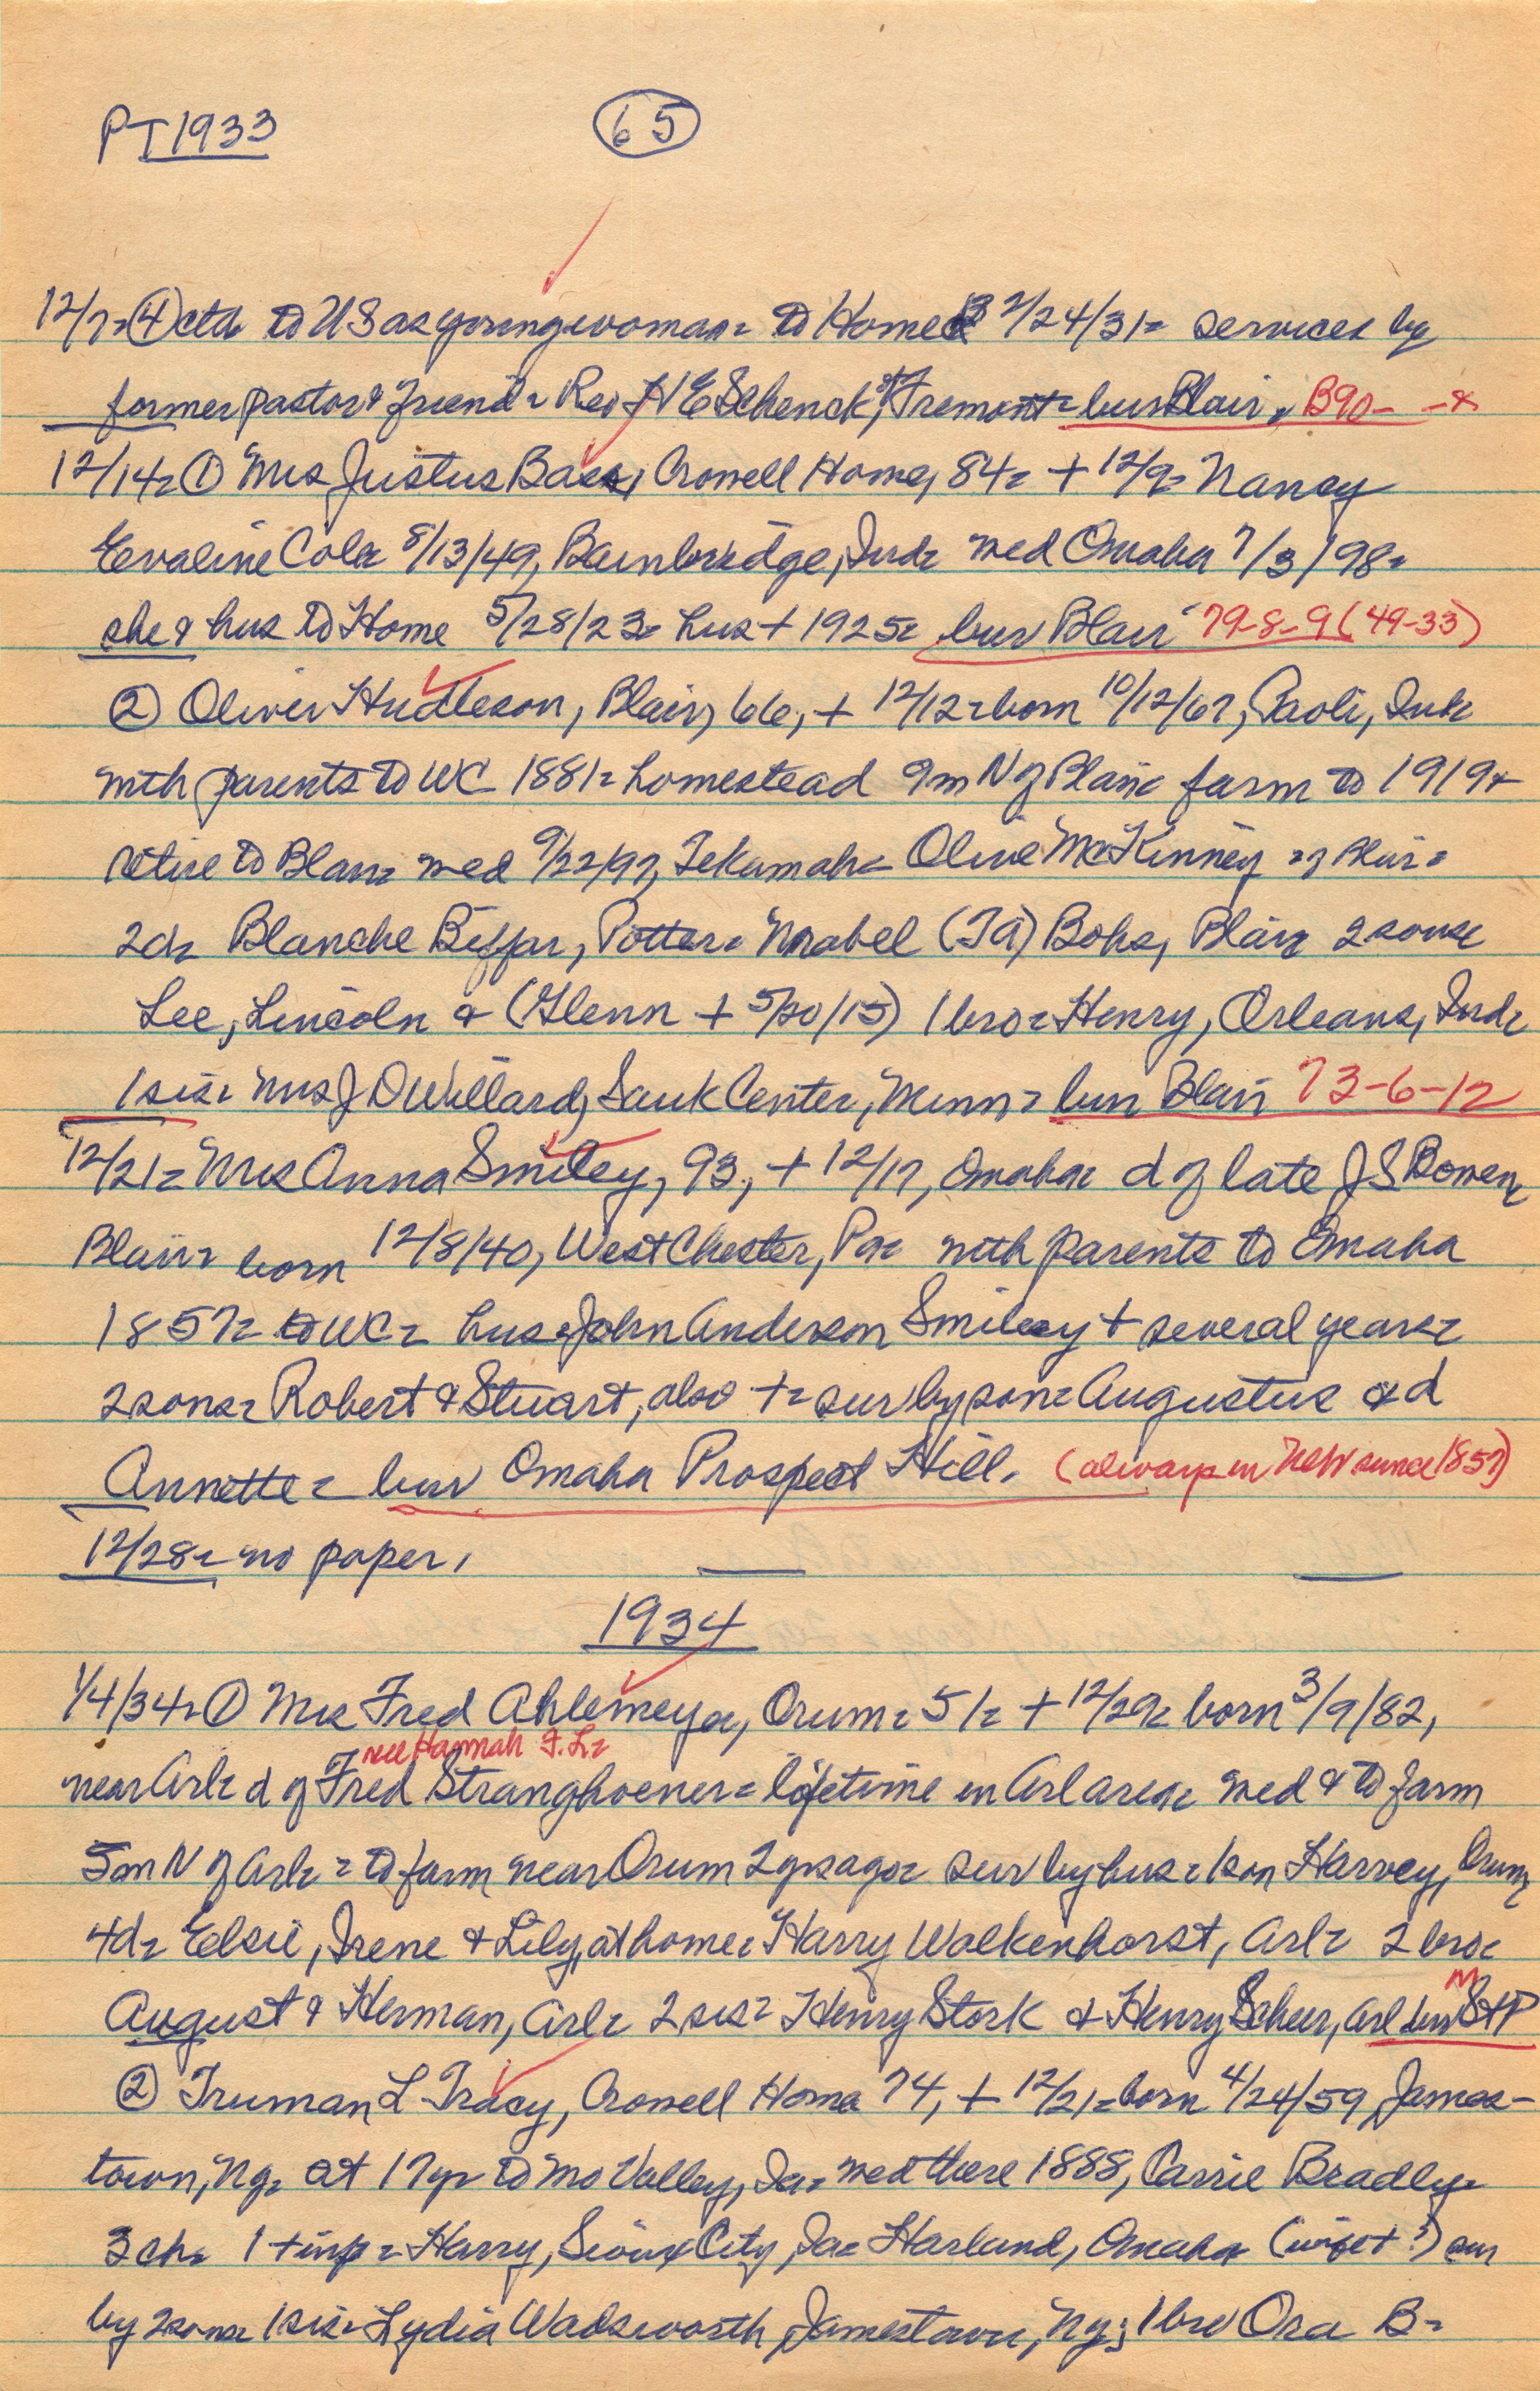 PT 1933
65
12/7= ④ ctd to US as young woman= to Home 2/24/31= services by
former pastor & friend= Rev H E Schenck, of Fremont= bur Blair, B90- -*
12/14= ① Mrs Justus Bass, Crowell Home, 84= + 12/9= Nancy
Evaline Cole 8/13/49, Bainbridge, Ind= med Omaha 7/3/98=
she & hus to Home 5/28/23= hus + 1925= bur Blair 79-8-9 (49-33)
② Oliver Hudleson, Blair, 66, + 12/12= born 10/12/67, Paoli, Ind=
with parents to WC 1881= homestead 9m N of Blair= farm to 1919+
retire to Blair= med 9/22/97, Tekamah= Olive McKinney = of Blair=
2d= Blanche Biffar, Potter= Mabel (Ta) Bohs, Blair= 2 sons=
Lee, Lincoln & (Glenn + 5/30/15) 1 bro= Henry, Orleans, Ind=
1 sis= Mrs J D Willard, Sauk Center, Minn= bur Blair 73-6-12
12/21= Mrs Anna Smiley, 93, + 12/17, Omaha= d of late J S Bowen=
Blair= born 12/8/40, West Chester, Pa= with parents to Omaha
1857= to WC= hus= John Anderson Smiley + several years=
2 sons= Robert & Stuart, also += sur by son= Augustus & d
Annette= bur Omaha Prospect Hill. (always in Neb since 1857)
12/28= no paper,
1934
1/4/34= ① Mrs Fred Ahlemeyer, Orum= 51= + 12/29= born 3/9/82,
nee Hannah F. L=
near Arl= d of Fred Stranghoener= lifetime in Arl area= med & to farm
5m N of Arl= = to farm near Orum 2 yrs ago= sur by hus= 1 son Harvey, Orum=
4d= Elsie, Irene & Lily, at home= Harry Wolkenhorst, Arl= 2 bro=
August & Herman, Arl= 2 sis= Henry Stork & Henry Scheer, Arl bur St P
M
② Truman L Tracy, Crowell Home 74, + 12/21= born 4/24/59, James-
town, Ny= at 17yr to Mo Valley, Ia= med there 1888, Carrie Bradly=
3 ch= 1 + inf= Harry, Sioux City, Ia= Harland, Omaha (wife + ?) sur
by 2 sons= 1 sis= Lydia Wadsworth, Jamestown, Ny; 1 bro Ora B=